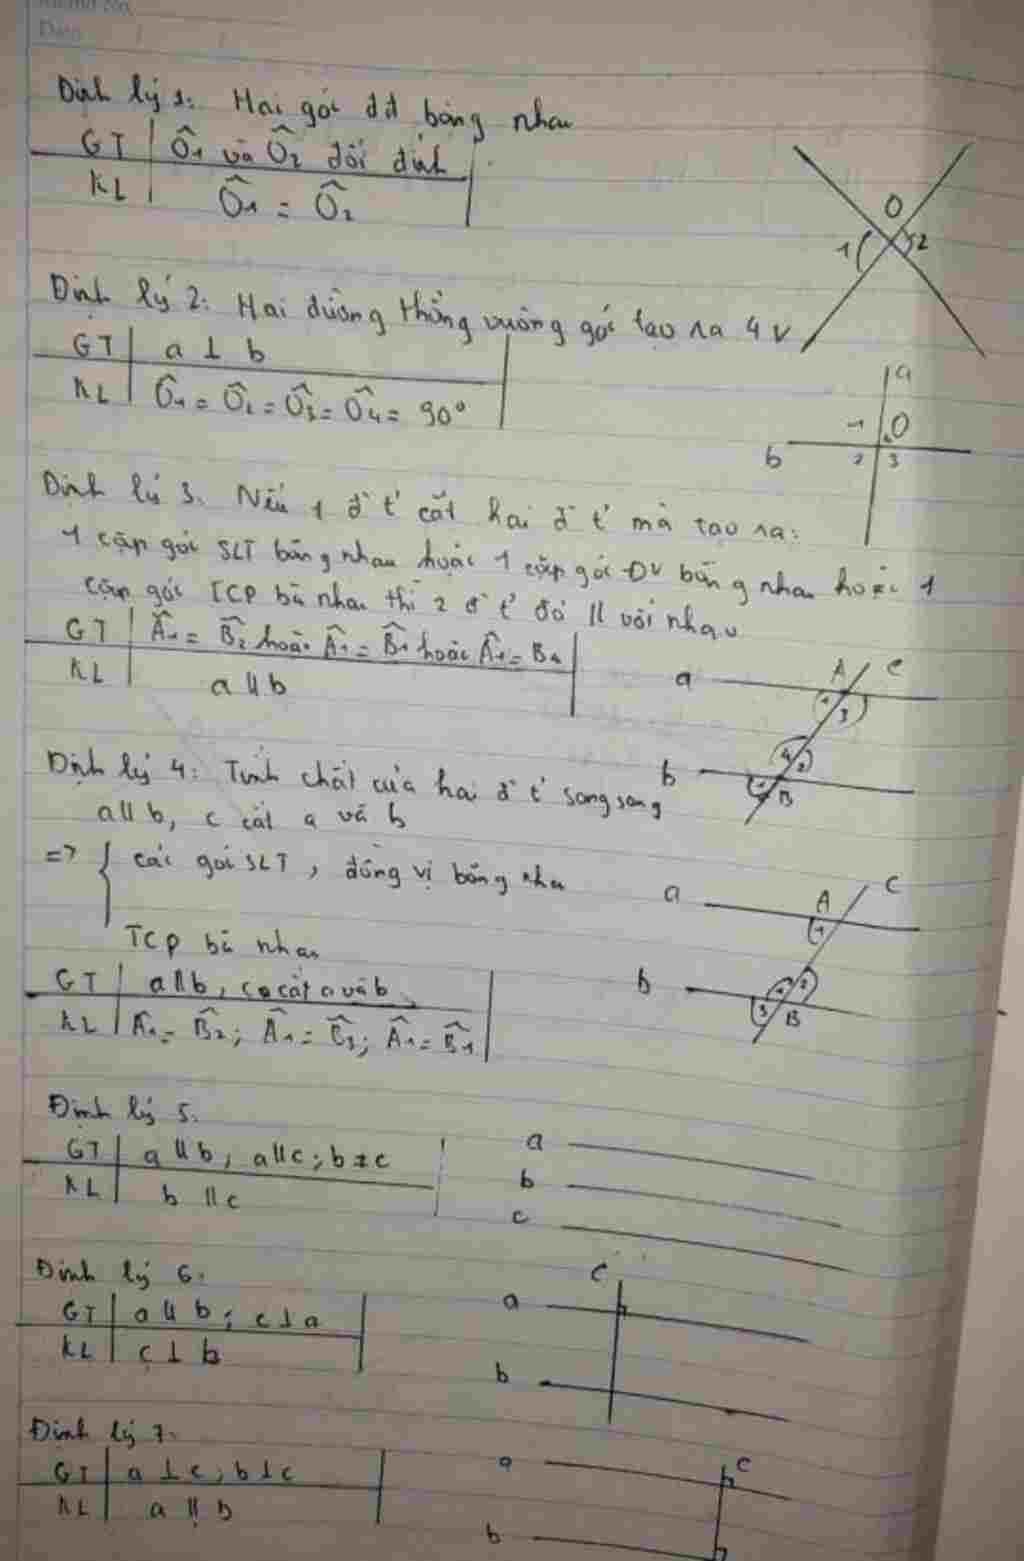 Định lý 1: Hai góc đđ bằng nhau
GT Ô1 và Ô2 đối đỉnh
KL Ô1 = Ô2
O
1 2
Định lý 2: Hai đường thẳng vuông góc tạo ra 4 v
GT a ⊥ b
KL Ô1 = Ô2 = Ô3 = Ô4 = 90°
a
1 O
b 2 3
Định lí 3. Nếu 1 đ t' cắt hai đ t' mà tạo ra:
1 cặp góc SLT bằng nhau hoặc 1 cặp góc ĐV bằng nhau hoặc 1
cặp góc TCP bù nhau thì 2 đ t' đó // với nhau
GT Â1 = B̂2 hoặc Â1 = B̂1 hoặc Â1 = B4
KL a // b
A c
a 1 3
b 4 2
1 B
Định lý 4: Tính chất của hai đ t' song song
a // b, c cắt a và b
=> { các góc SLT, đồng vị bằng nha
TCP bù nhau
a A c
1
b 1 2
3 B
GT a // b, c cắt a và b
KL Â1 = B̂2; Â1 = B̂3; Â1 = B̂1
Định lý 5.
GT a // b, a // c; b ≠ c
KL b // c
a
b
c
Định lý 6.
GT a // b; c ⊥ a
KL c ⊥ b
c
a
b
Định lý 7.
GT a ⊥ c; b ⊥ c
KL a // b
a c
b